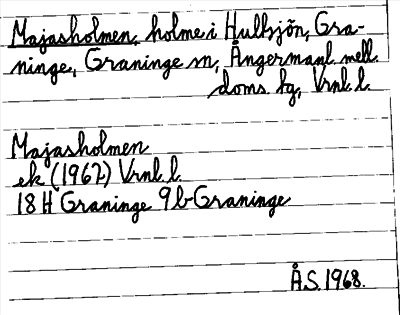 Majasholmen, holme i Hullsjön, Gra-
ninge, Graninge sn, Ångermanl. mell.
doms hg, Vrnl. l.
Majasholmen
ek (1962) Vrnl. l.
18 H Graninge 9b Graninge
Å.S. 1968.